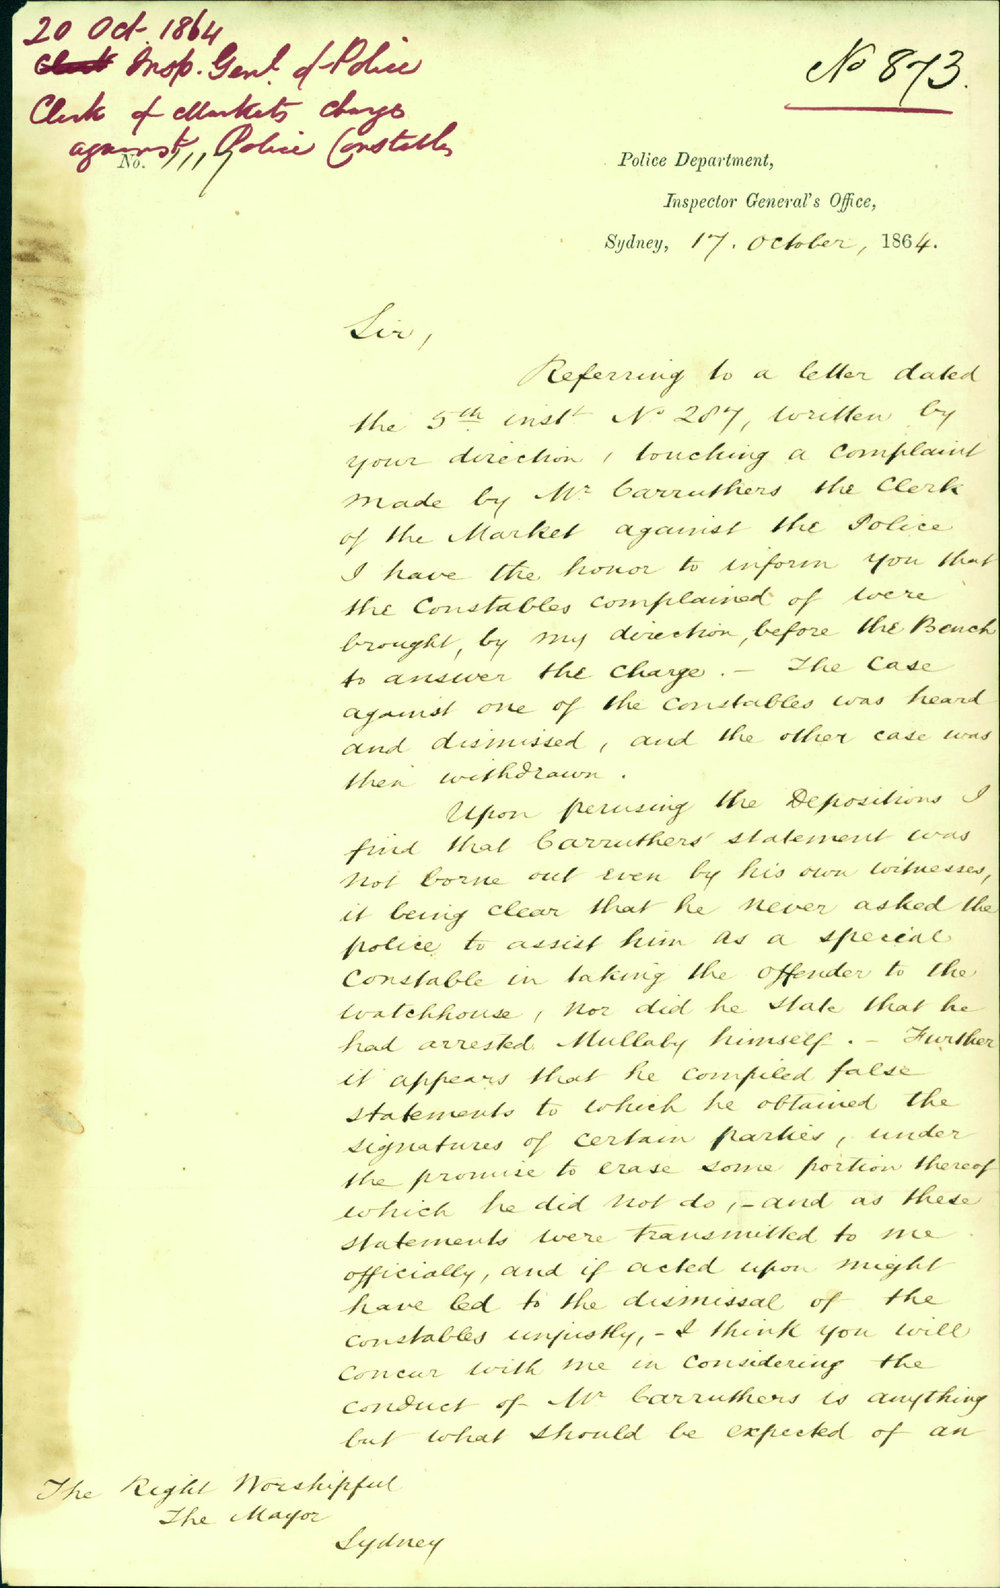 20 Oct. 1864
Clerk Insp. Genl. of Police
Clerk of Markets charge
against Police Constables
No 873.
No. 7/119
Police Department,
Inspector General's Office,
Sydney, 17. October, 1864.
Sir,
Referring to a letter dated
the 5th inst No 287, written by
your direction, touching a complaint
made by Mr Carruthers the Clerk
of the Market against the Police
I have the honor to inform you that
the Constables complained of were
brought, by my direction, before the Bench
to answer the charge. — The case
against one of the constables was heard
and dismissed, and the other case was
then withdrawn.
Upon perusing the Depositions I
find that Carruthers' statement was
not borne out even by his own witnesses,
it being clear that he never asked the
police to assist him as a special
Constable in taking the offender to the
watchhouse, nor did he state that he
had arrested Mullaby himself. — Further
it appears that he compiled false
statements to which he obtained the
signatures of certain parties, under
the promise to erase some portion thereof
which he did not do, — and as these
statements were transmitted to me
officially, and if acted upon might
have led to the dismissal of the
constables unjustly, — I think you will
concur with me in considering the
conduct of Mr Carruthers is anything
but what should be expected of an
The Right Worshipful
The Mayor
Sydney